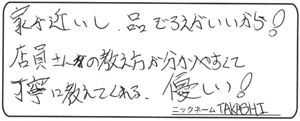 家が近いし、品ぞろえがいいから!
店員さんの教え方が分かりやすくて
丁寧に教えてくれる、優しい!
ニックネーム TAKASHI